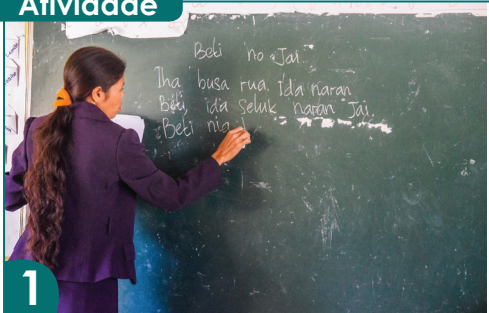 Atividade
Beti no Jai
Iha busa rua. Ida naran
Beti, ida seluk naran Jai.
Beti nia
1